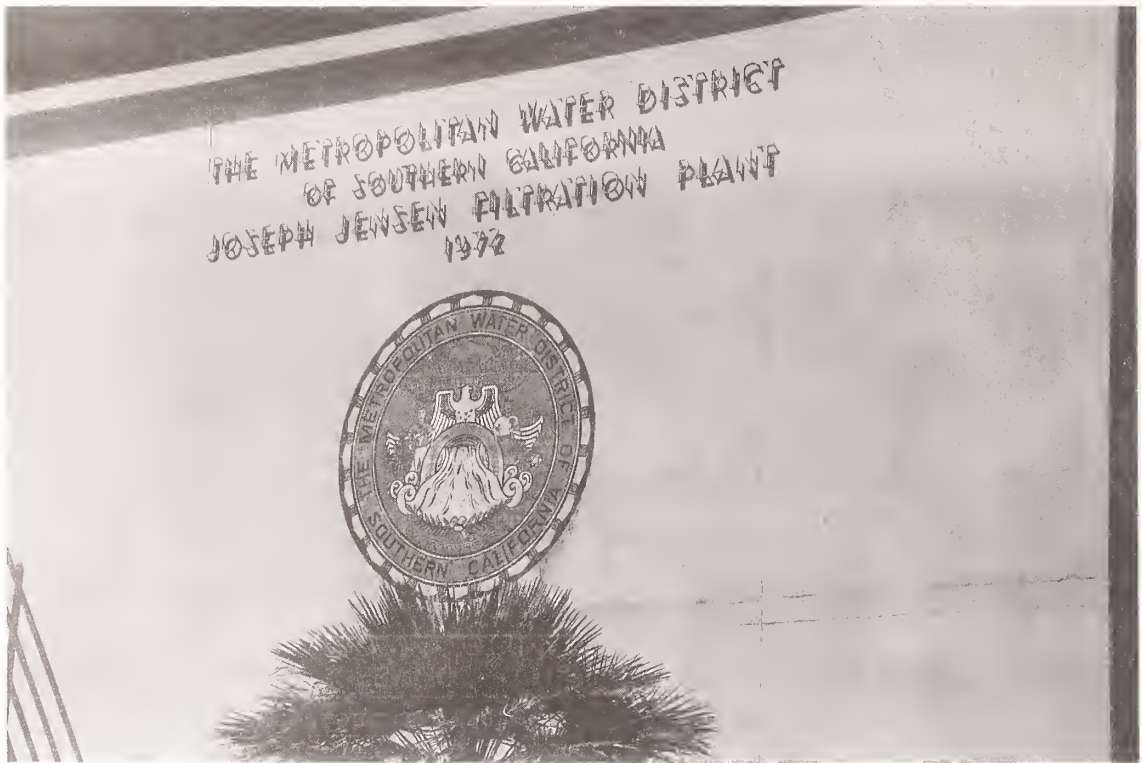 THE METROPOLITAN WATER DISTRICT
OF SOUTHERN CALIFORNIA
JOSEPH JENSEN FILTRATION PLANT
1972
THE METROPOLITAN WATER DISTRICT OF
SOUTHERN CALIFORNIA